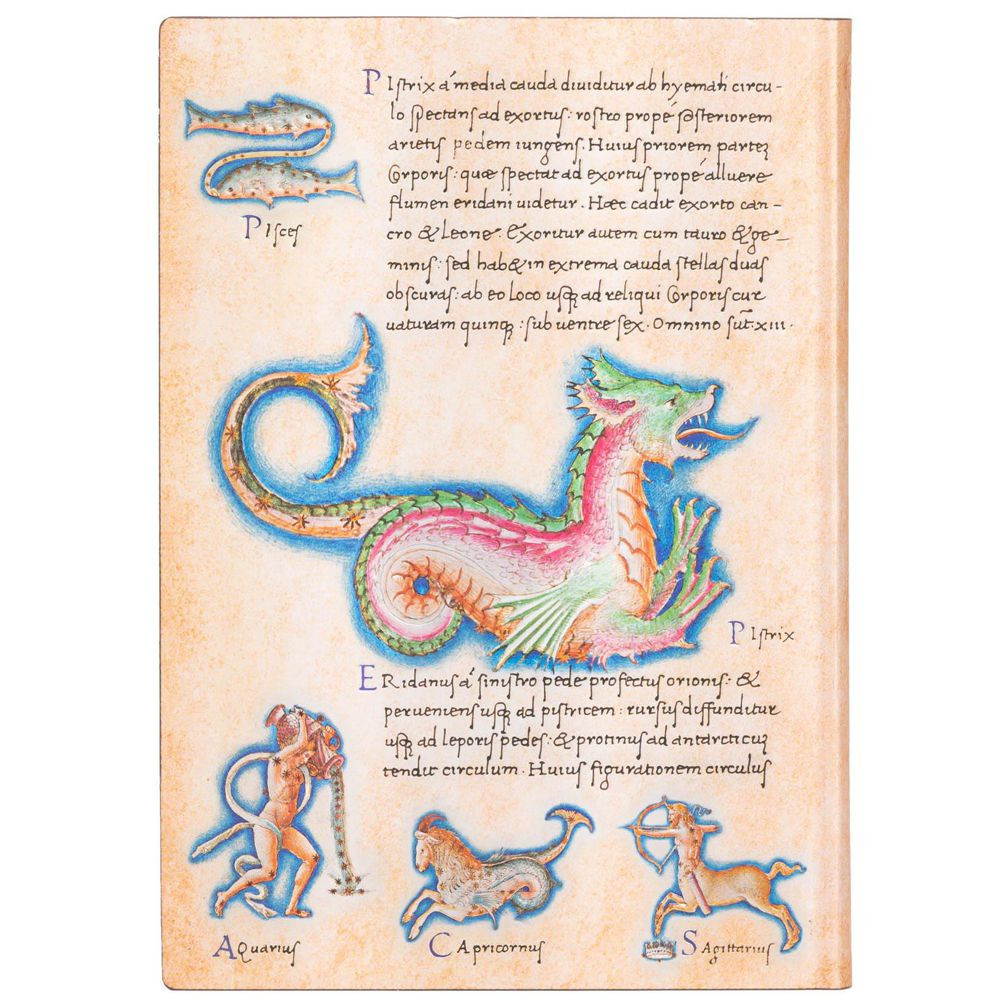 PIstrix a' media cauda diuiditur ab hyemali circu-
lo spectans ad exortus: rostro propé posteriorem
arietis pedem iungens. Huius priorem partez
Corporis: quæ spectat ad exortus propé álluere
flumen eridani uidetur. Hæc cadit exorto can-
cro & Leone. Exoritur autem cum tauro & ge-
minis: sed hab& in extrema cauda stellas duas
obscuras: ab eo loco usq ad reliqui Corporis cur
uaturam quinq: sub uentre sex. Omnino sut xiii.
PIsces
PIstrix
ERidanus a' sinistro pede profectus orionis: &
perueniens usq ad pistricem: rursus diffunditur
usq ad leporis pedes: & protinus ad antarcticuz
tendit circulum. Huius figurationem circulus
AQuarius
CApricornus
SAgittarius